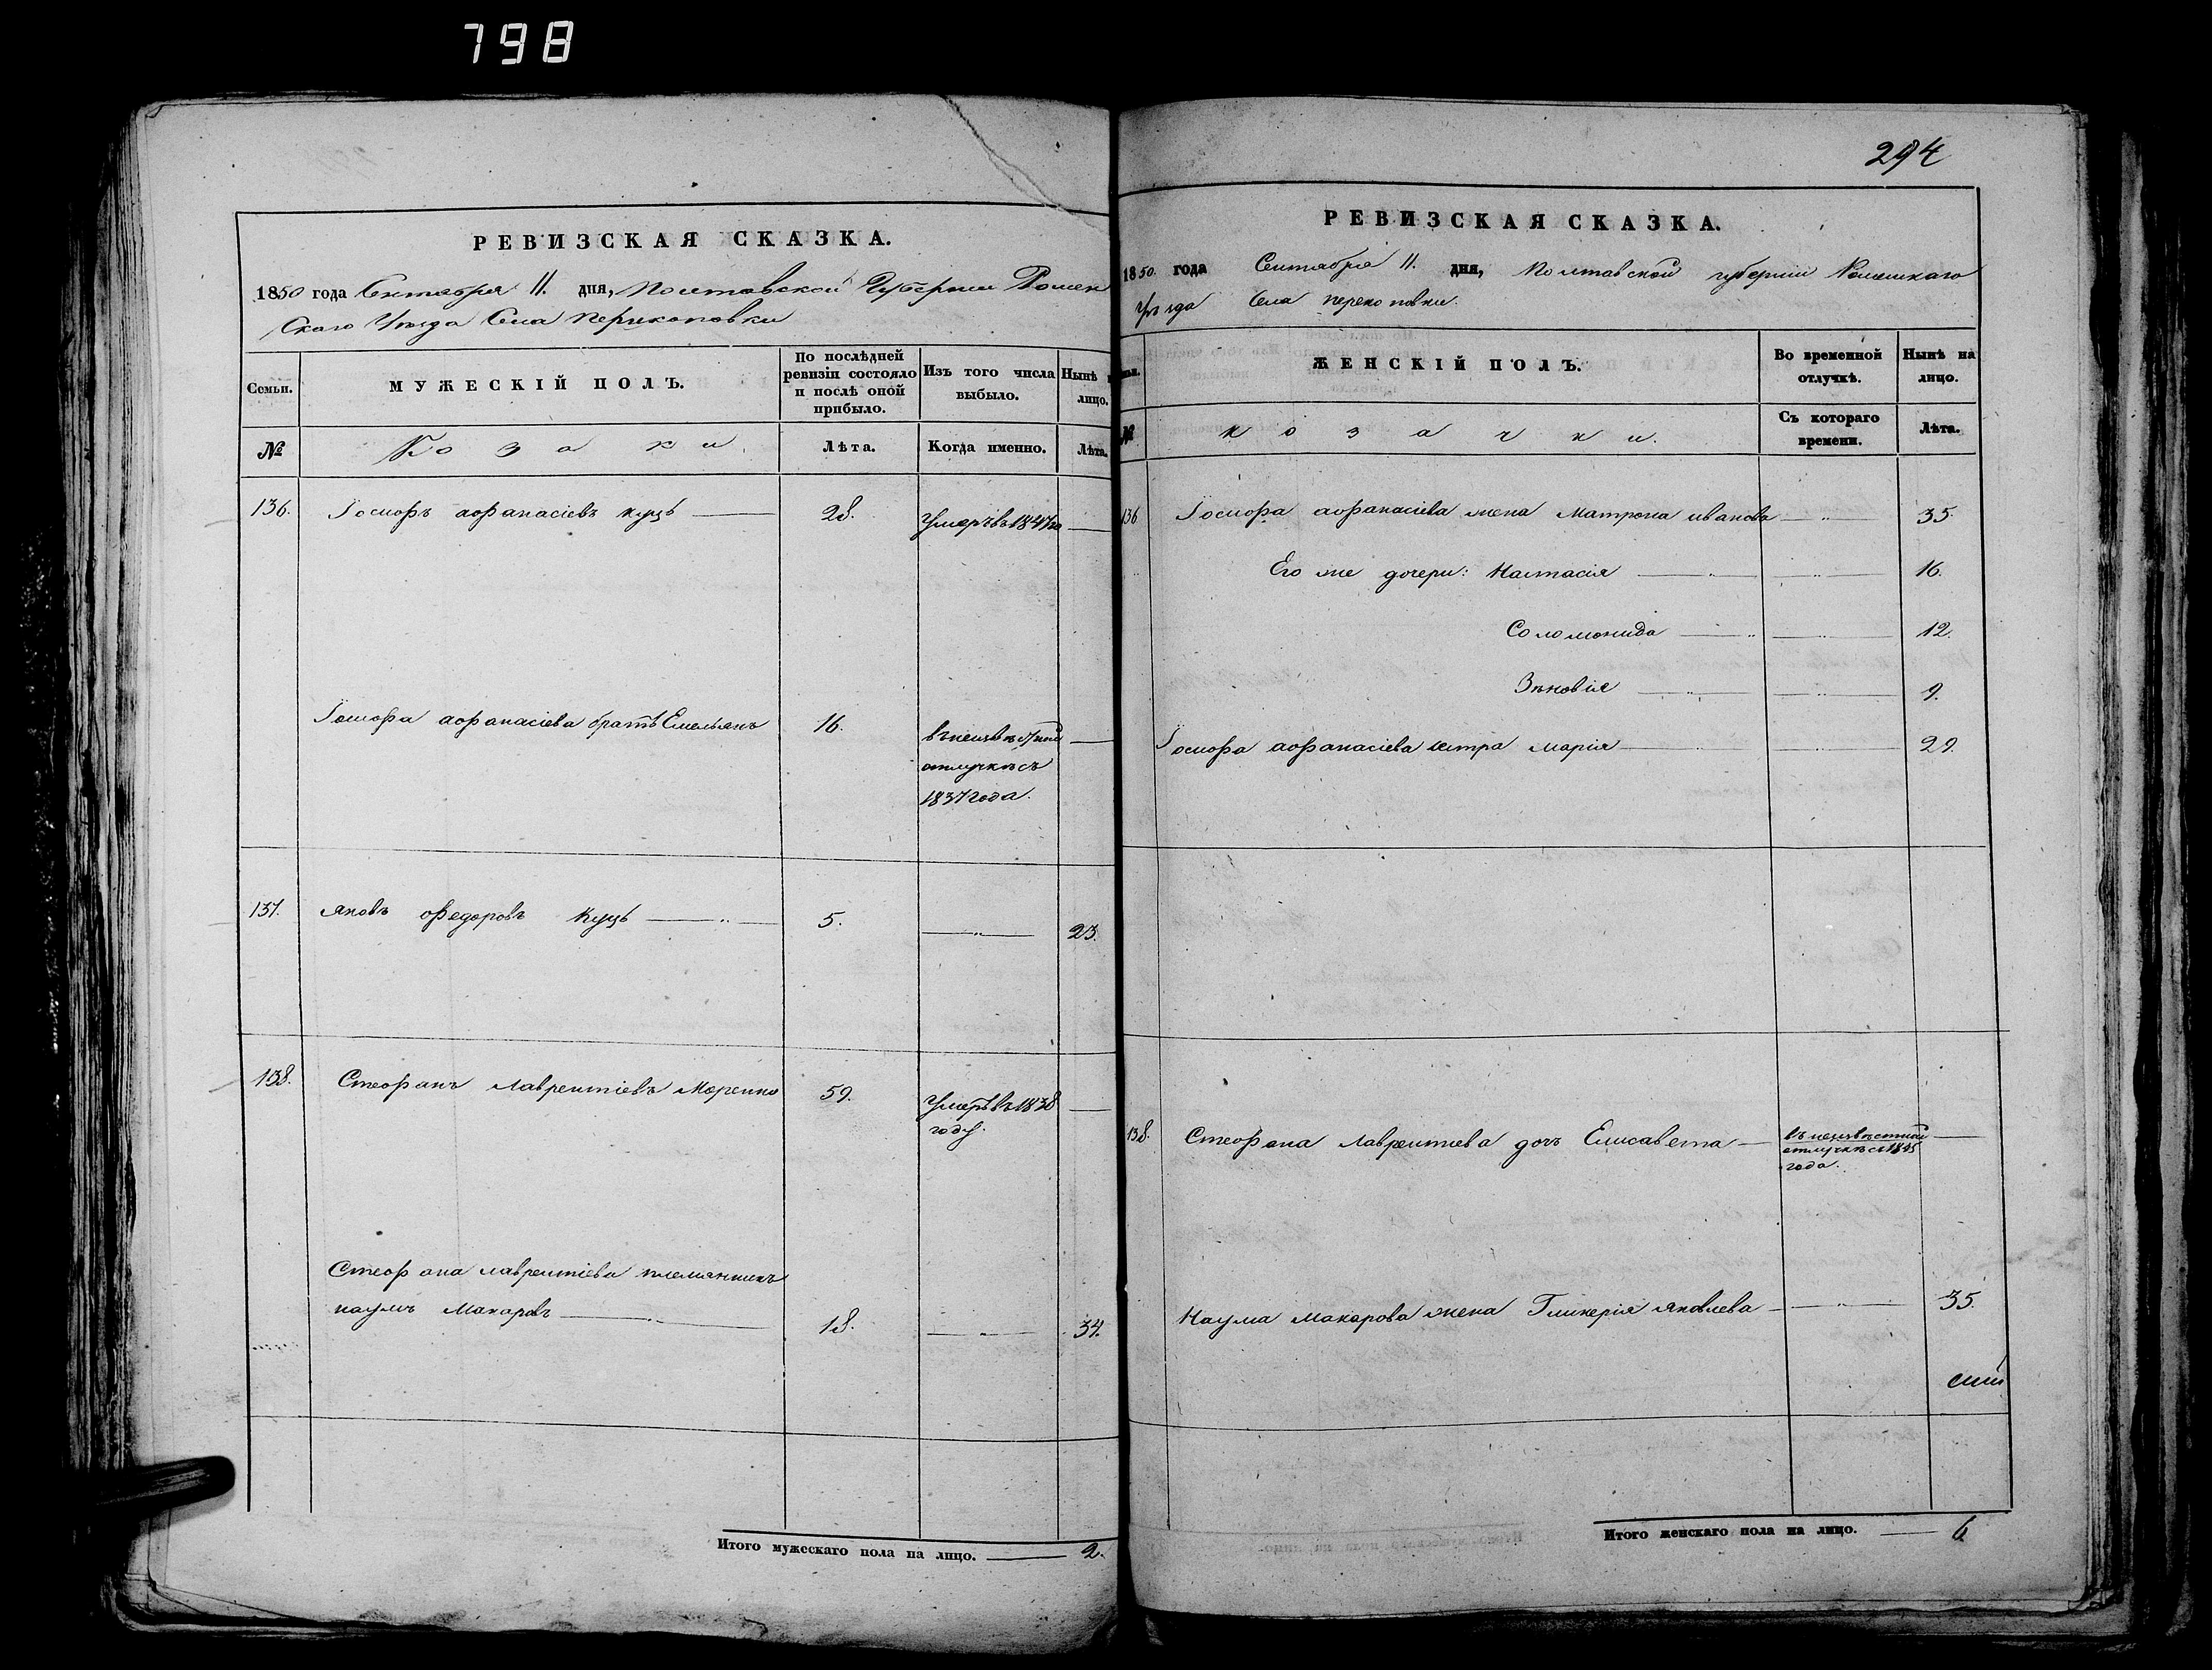 798
РЕВИЗСКАЯ СКАЗКА.
1850 года Сентября 11. дня, Полтавской Губернии Ромен
скаго Уезда Села Перикоповки
Семьи.
МУЖЕСКІЙ ПОЛЪ.
По послѣдней ревизіи состояло и послѣ оной прибыло.
Изъ того числа выбыло.
Нынѣ лицо.
№
Козаки
Лѣта.
Когда именно.
Лѣта.
136. Іосифъ Афанасіевъ Куцъ 28. Умеръ въ 1847 го
Іосифа Афанасіева братъ Емельянъ 16. въ неизвѣстной
отлучкѣ съ
1837 года.
137. Яковъ Федоровъ Куцъ 5. 23.
138. Стефанъ Лаврентіевъ 59. Умеръ въ 1838
году.
Стефана Лаврентіева племянникъ
Наумъ Макаровъ 18. 34.
Итого мужескаго пола на лицо. 2.
294
РЕВИЗСКАЯ СКАЗКА.
1850. года Сентября 11. дня, Полтавской губерніи Роменскаго
Уѣзда Села Перекоповки.
ЖЕНСКІЙ ПОЛЪ.
Во временной отлучкѣ.
Нынѣ на лицо.
№
Козачки.
Съ котораго времени.
Лѣта.
136 Іосифа Афанасіева жена Матрона Иванова 35.
Его же дочери: Настасія 16.
Соломонида 12.
Зѣновія 9.
Іосифа Афанасіева сестра Марія 29.
138. Стефана Лаврентіева дочь Елисавета въ неизвѣстной
отлучкѣ съ 1845
года.
Наума Макарова жена Гликерія Яковлева 35.
Итого женскаго пола на лицо. 6